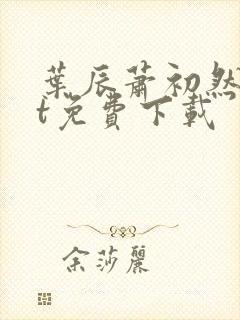 葉辰蕭初然
t免費下載
余莎麗